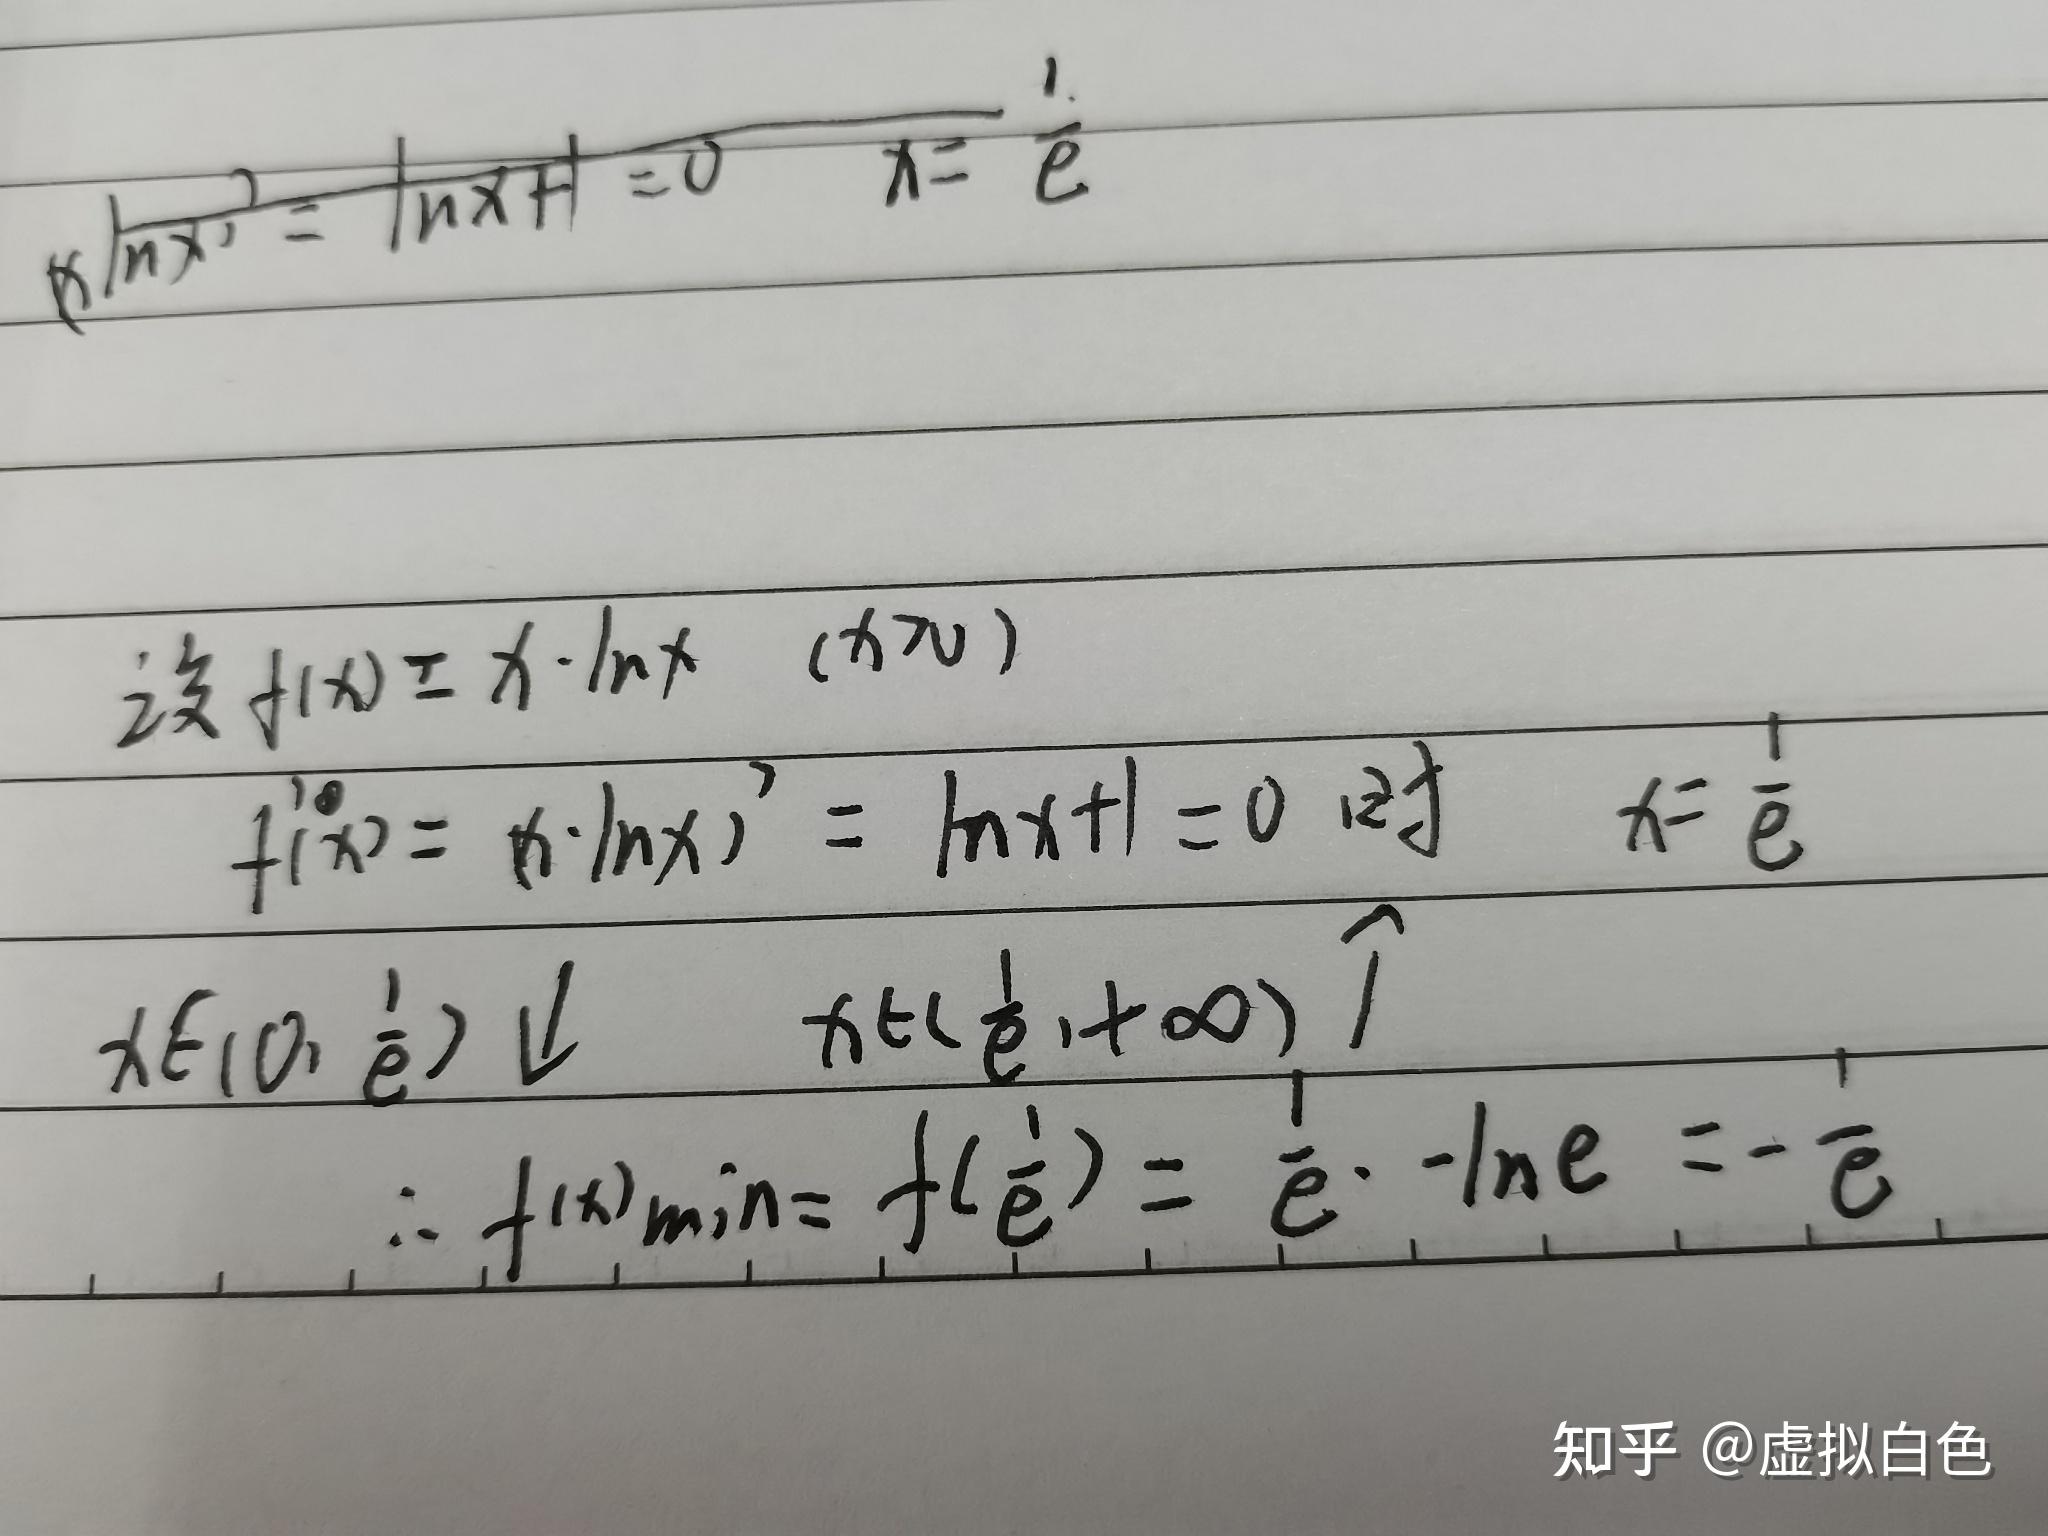 (xlnx)' = lnx+1 =0 x= 1/e
设 f(x)= x·lnx (x>0)
f'(x)= (x·lnx)' = lnx+1 =0 时 x= 1/e
x∈(0, 1/e) ↓ x∈(1/e,+∞) ↑
∴ f(x)min= f(1/e) = 1/e · -lne =- 1/e
知乎 @虚拟白色